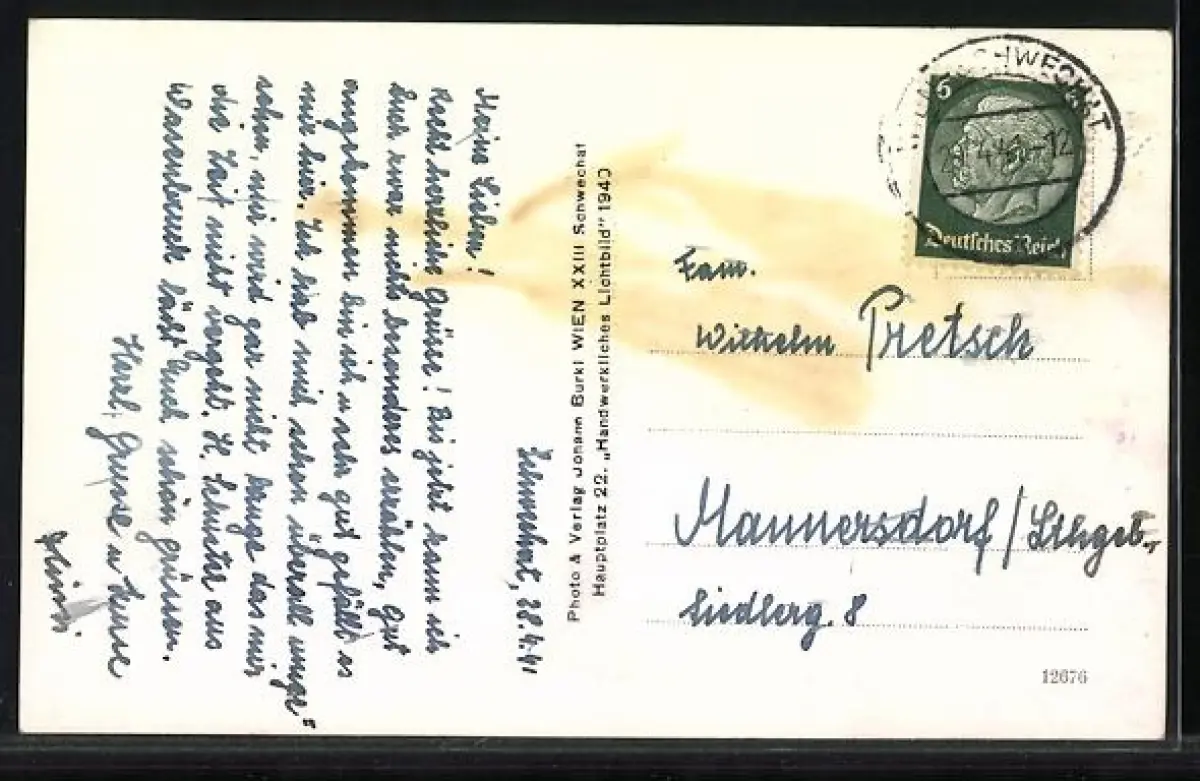 Schwechat, 28.4.41
Meine Lieben!
Recht herzliche Grüsse! Bis jetzt kann ich
Euch zwar nichts besonderes erzählen, gut
angekommen bin ich u. sehr gut gefällt es
mir hier. Ich hab mich schon überall umge"
sehen, mir wird gar nicht bange das mir
die Zeit nicht vergeht. H. Schuster aus
lässt Euch schön grüssen.
Herzl. Grüsse u. Küsse
Photo & Verlag Johann Burkl WIEN XXIII Schwechat
Hauptplatz 22. „Handwerkliches Lichtbild" 1940
SCHWECHAT
6
Deutsches Reich
Fam.
Wilhelm Pretsch
Mannersdorf/Lthgeb.
Siedlerg. 8
12676